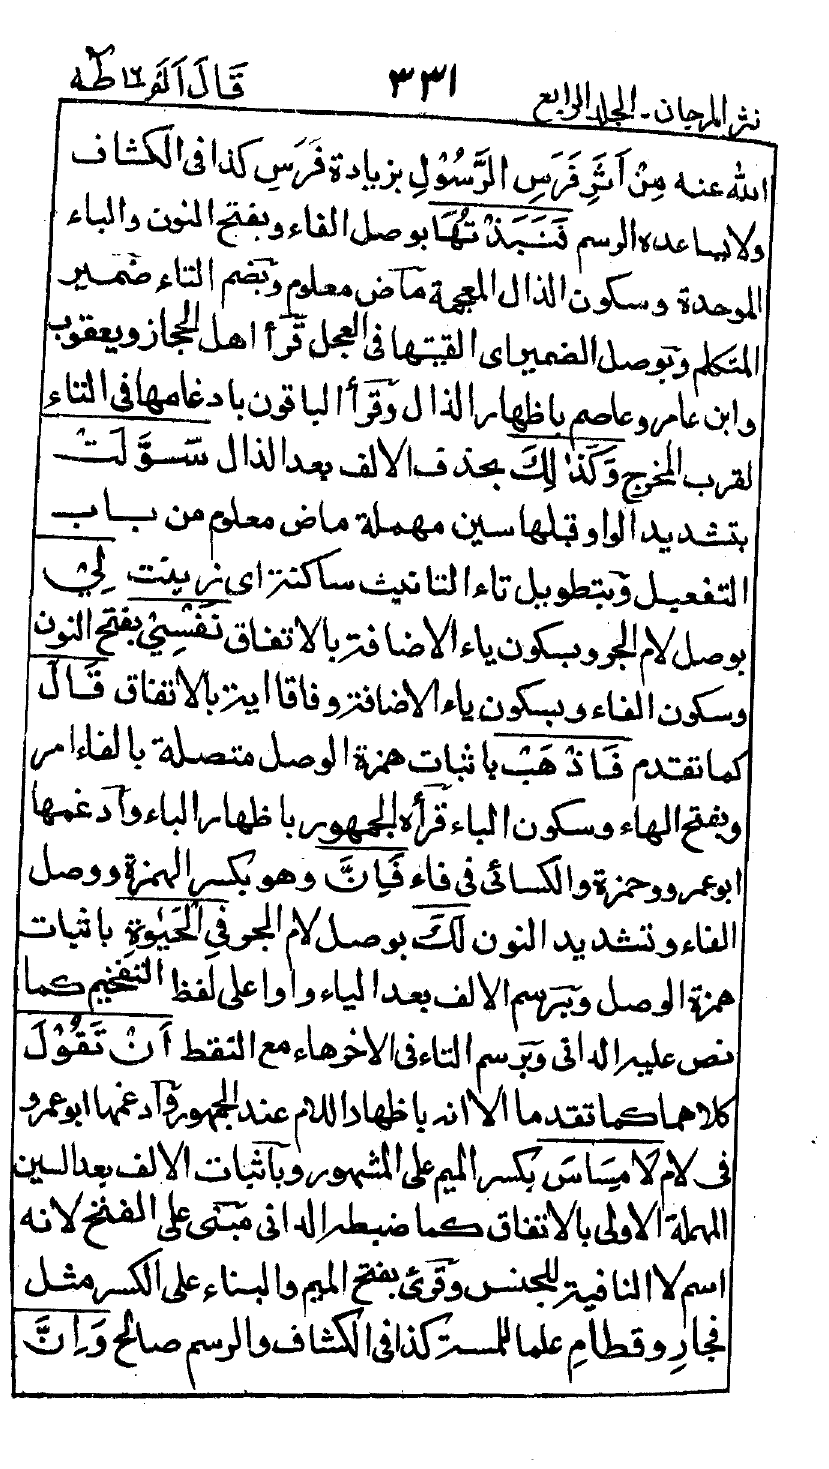 نثر المرجان - المجلد الرابع ٣٣١ قَالَ اَلَمْ ١٦ طٰهٰ
الله عنه مِنْ اَثَرِ فَرَسِ الرَّسُوْلِ بزيادة فَرَسِ كذا فى الكشاف
ولا يساعده الرسم فَنَبَذْتُهَا بوصل الفاء وبفتح النون والباء
الموحدة وسكون الذال المعجمة ماض معلوم وبضم التاء ضمير
المتكلم وبوصل الضمير اى القيتها فى العجل قرأ اهل الحجاز ويعقوب
وابن عامر وعاصم باظهار الذال وقرأ الباقون بادغامها فى التاء
لقرب المخرج وَكَذٰلِكَ بحذف الالف بعد الذال سَوَّلَتْ
بتشديد الواو قبلها سين مهملة ماض معلوم من باب
التفعيل وبتطويل تاء التانيث ساكنة اى زينت لِيْ
بوصل لام الجر وبسكون ياء الاضافة بالاتفاق نَفْسِيْ بفتح النون
وسكون الفاء وبسكون ياء الاضافة وفاقا اية بالاتفاق قَالَ
كما تقدم فَاذْهَبْ باثبات همزة الوصل متصلة بالفاء امر
وبفتح الهاء وسكون الباء قرأه الجمهور باظهار الباء وادغمها
ابو عمرو وحمزة والكسائى فى فاء فَاِنَّ وهو بكسر الهمزة ووصل
الفاء وتشديد النون لَكَ بوصل لام الجر فِي الْحَيٰوةِ باثبات
همزة الوصل وبرسم الالف بعد الياء واوا على لفظ التفخيم كما
نص عليه الدانى وبرسم التاء فى الاخر هاء مع النقط اَنْ تَقُوْلَ
كلاهما كما تقدما الا انه باظهار اللام عند الجمهور وادغمها ابو عمرو
فى لام لَا مِسَاسَ بكسر الميم على المشهور وباثبات الالف بعد السين
المهملة الاولى بالاتفاق كما ضبطه الدانى مبنى على الفتح لانه
اسم لا النافية للجنس وقرئ بفتح الميم والبناء على الكسر مثل
فجارِ وقطامِ علما للمسة كذا فى الكشاف والرسم صالح وَاِنَّ